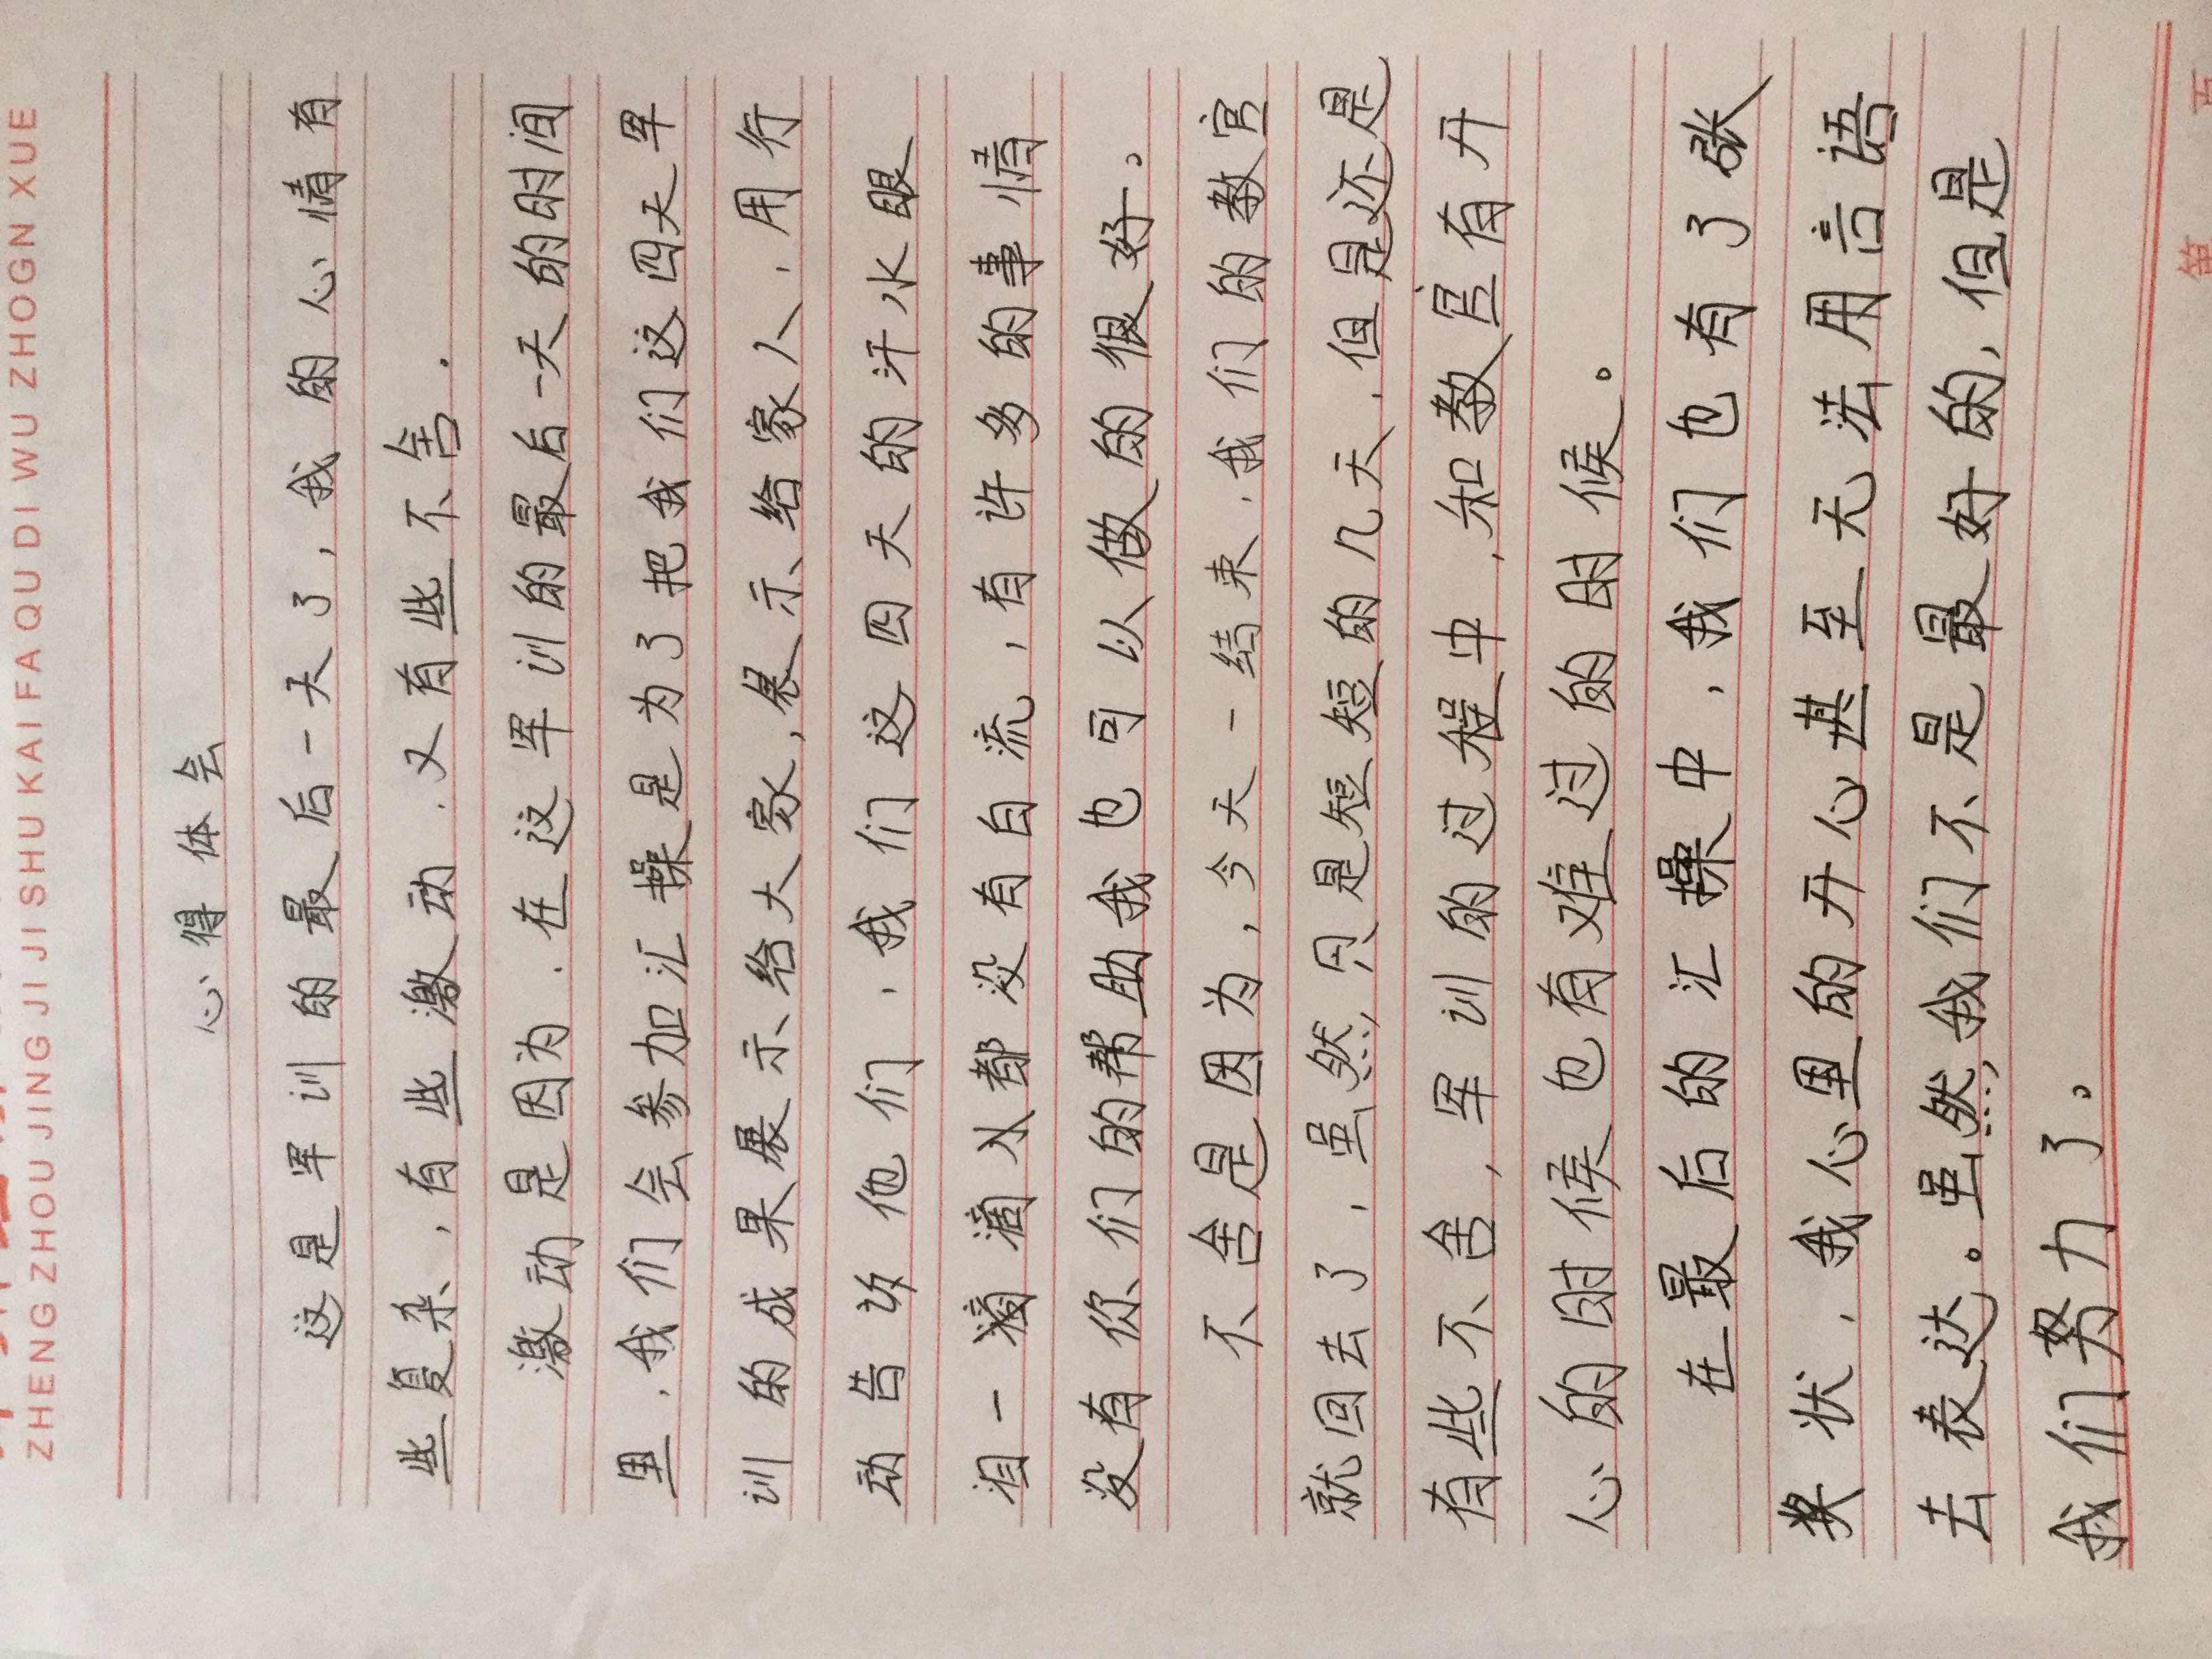 ZHENG ZHOU JING JI JI SHU KAI FA QU DI WU ZHOGN XUE
心得体会
这是军训的最后一天了,我的心情有
些复杂,有些激动.又有些不舍.
激动是因为.在这军训的最后一天的时间
里.我们会参加汇操是为了把我们这四天军
训的成果展示给大家,展示给家人.用行
动告诉他们.我们这四天的汗水眼
泪一滴滴从都没有白流,有许多的事情
没有你们的帮助我也可以做的很好。
不舍是因为,今天一结束.我们的教官
就回去了.虽然,只是短短的几天.但是还是
有些不舍,军训的过程中,和教官有开
心的时候也有难过的时候。
在最后的汇操中,我们也有了张
奖状.我心里的开心甚至无法用言语
去表达。虽然,我们不是最好的,但是
我们努力了。
第 页